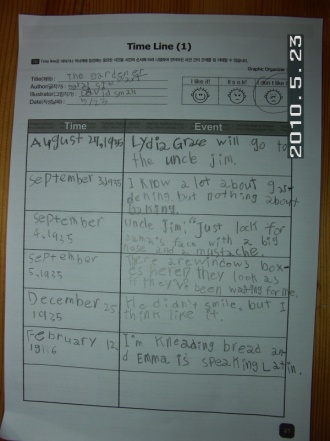 Time Line (1)
Graphic Organizer
Title(제목): The Gardener
Author(글쓴이):
Illustrator(그림작가): David Small
Date(날짜): 5/23
I like it!
It is o.k!
2010.5.23
Time Event
August 27, 1935 Lydia Grace will go to
the uncle jim.
September 3, 1935 I know a lot about gar
dening but nothing about
baking.
September Uncle Jim, "Just look for
4, 1925 mama's face with a big
nose and a mustache.
September There are windows box-
5, 1925 es here! they look as
if they've been waiting for me.
December 25 He didn't smile, but I
1925 think like it.
February 12, I'm kneading bread an
1916 d Emma is speaking Latin.